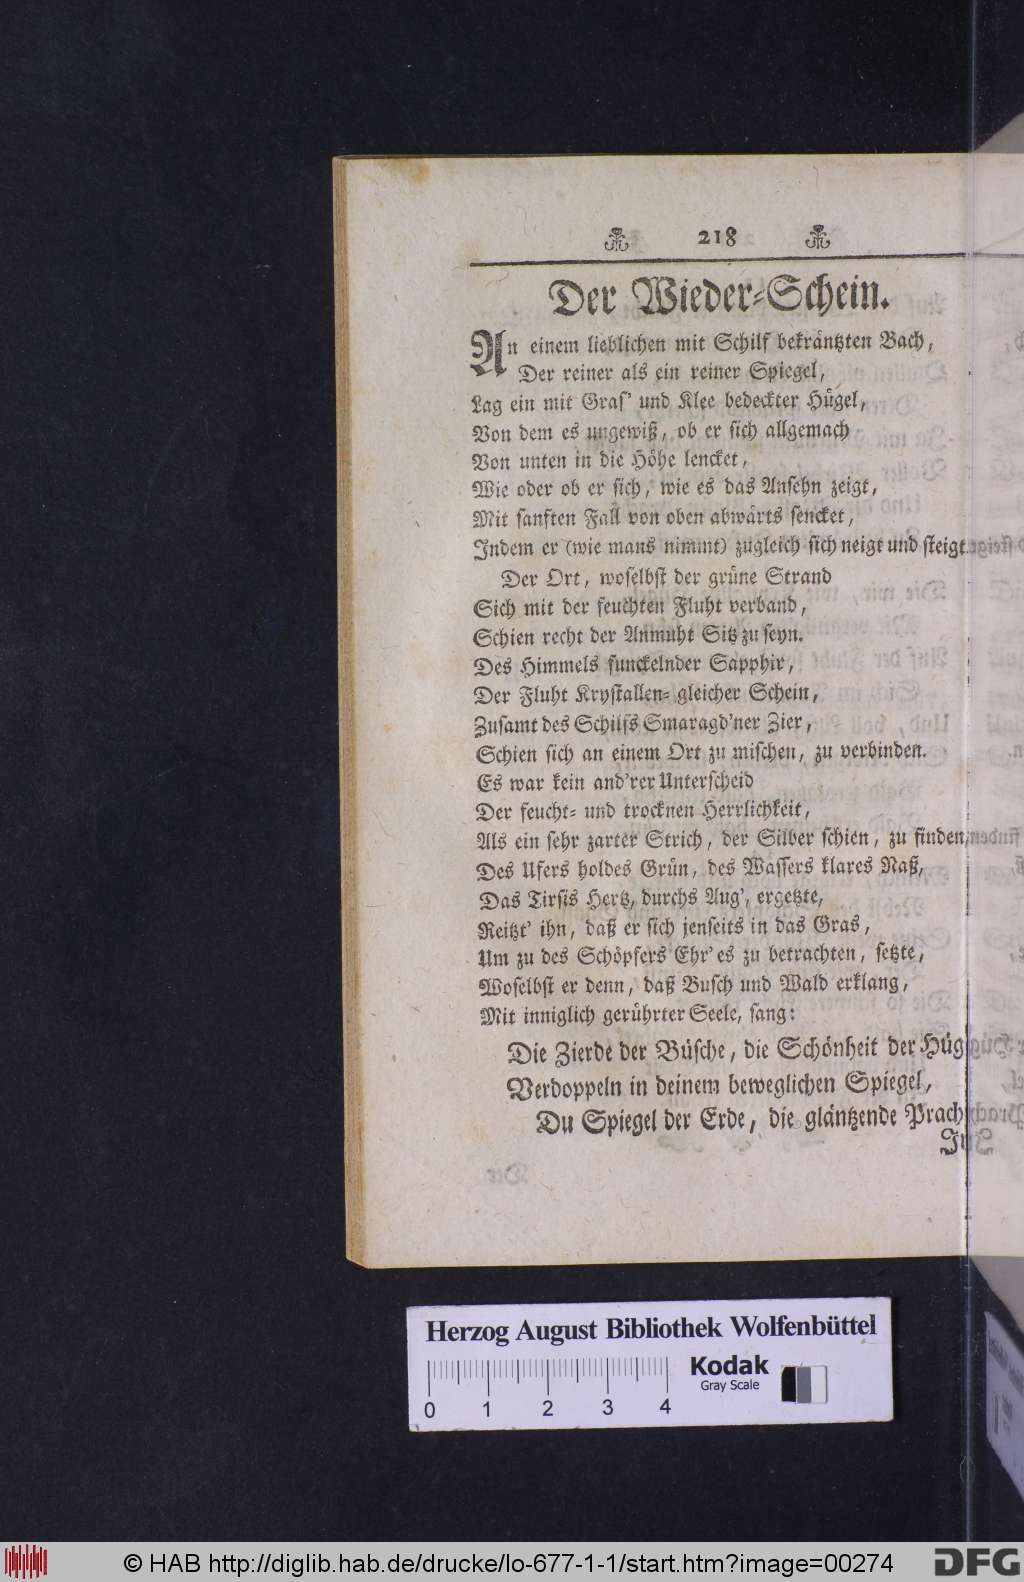 218
Der Wieder-Schein.
An einem lieblichen mit Schilf bekräntzten Bach,
Der reiner als ein reiner Spiegel,
Lag ein mit Gras' und Klee bedeckter Hügel,
Von dem es ungewiß, ob er sich allgemach
Von unten in die Höhe lencket,
Wie oder ob er sich, wie es das Ansehn zeigt,
Mit sanften Fall von oben abwärts sencket,
Indem er (wie mans nimmt) zugleich sich neigt und steigt.
Der Ort, woselbst der grüne Strand
Sich mit der feuchten Fluht verband,
Schien recht der Anmuht Sitz zu seyn.
Des Himmels funckelnder Sapphir,
Der Fluht Krystallen-gleicher Schein,
Zusamt des Schilfs Smaragd'ner Zier,
Schien sich an einem Ort zu mischen, zu verbinden.
Es war kein and'rer Unterscheid
Der feucht- und trocknen Herrlichkeit,
Als ein sehr zarter Strich, der Silber schien, zu finden,
Des Ufers holdes Grün, des Wassers klares Naß,
Das Tirsis Hertz, durchs Aug', ergetzte,
Reitzt' ihn, daß er sich jenseits in das Gras,
Um zu des Schöpfers Ehr' es zu betrachten, setzte,
Woselbst er denn, daß Busch und Wald erklang,
Mit inniglich gerührter Seele, sang:
Die Zierde der Büsche, die Schönheit der Hüg
Verdoppeln in deinem beweglichen Spiegel,
Du Spiegel der Erde, die gläntzende Prach
Herzog August Bibliothek Wolfenbüttel
Kodak
Gray Scale
0 1 2 3 4
© HAB http://diglib.hab.de/drucke/lo-677-1-1/start.htm?image=00274
DFG